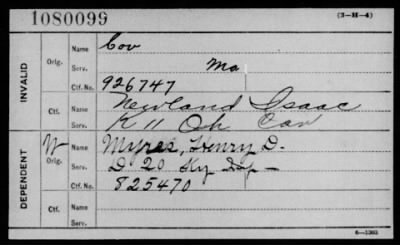 1080099
(3-H-4)
INVALID
Orig.
Name Cov
Serv. Mo
Ctf. No. 926747
Ctf.
Name Newland Isaac
Serv. K 11 Oh Cav
DEPENDENT
W
Orig.
Name Myres, Henry D.
Serv. D 20 Ky Inf
Ctf. No. 825470
Ctf.
Name
Serv.